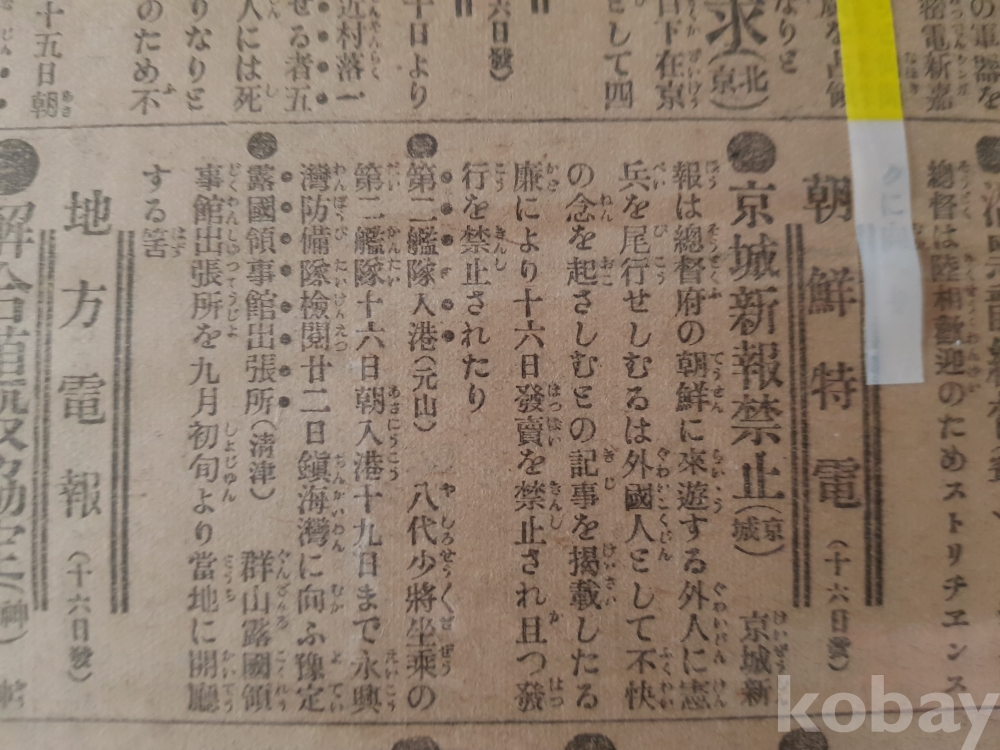 の電器を
密電新嘉
なりと
求(北京)
日下在京
として四
六日發)
十日より
近村落一
せる者五
人には死
りなりと
のため不
十五日朝
總督は陸相歡迎のためストリチエンス
朝鮮特電(十六日發)
●京城新報禁止(京城) 京城新
報は總督府の朝鮮に來遊する外人に憲
兵を尾行せしむるは外國人として不快
の念を起さしむとの記事を揭載したる
廉により十六日發賣を禁止され且つ發
行を禁止されたり
●第二艦隊入港(元山) 八代少將坐乘の
第二艦隊十六日朝入港十九日まで永興
灣防備隊檢閱廿二日鎭海灣に向ふ豫定
●露國領事館出張所(淸津) 群山露國領
事館出張所を九月初旬より當地に開廳
する筈
地方電報(十六日發)
kobay